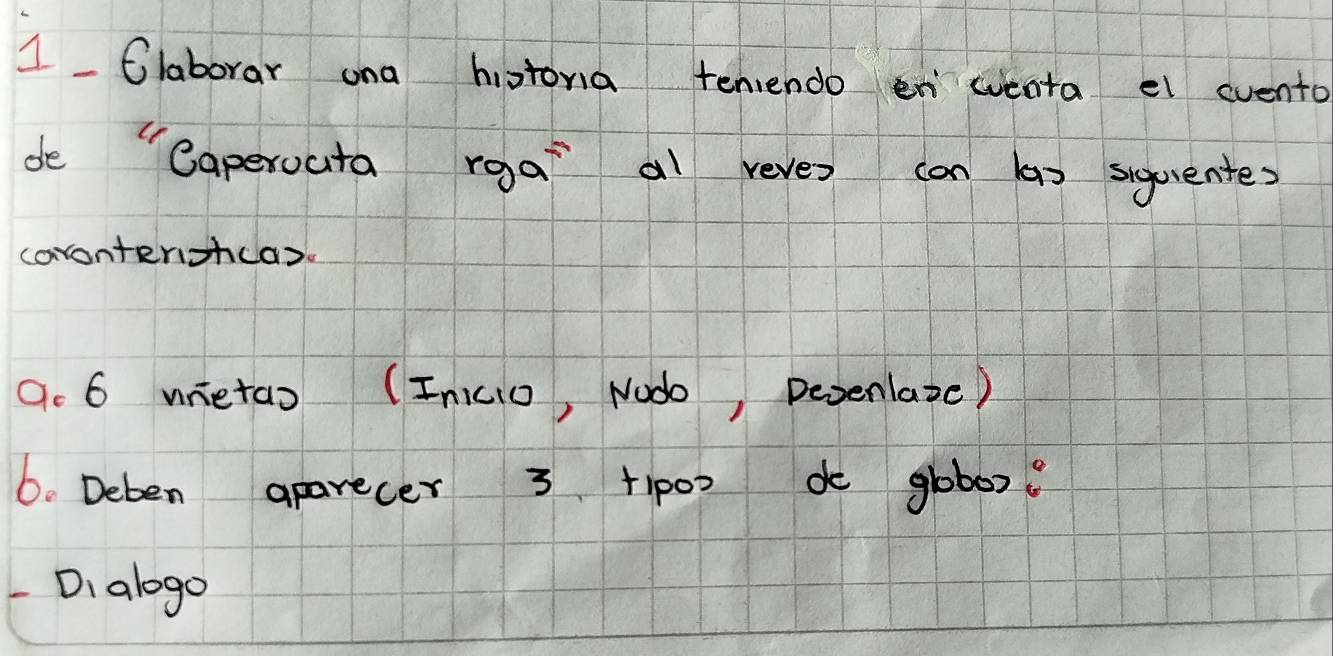 1- Elaborar una historia teniendo en cuenta el cuento
de "Caperucita roja" al reves con las siguientes
caranteristicas.
a. 6 viñetas (Inicio, Nudo, Desenlase)
b. Deben aparecer 3 tipos de globos:
- Dialogo